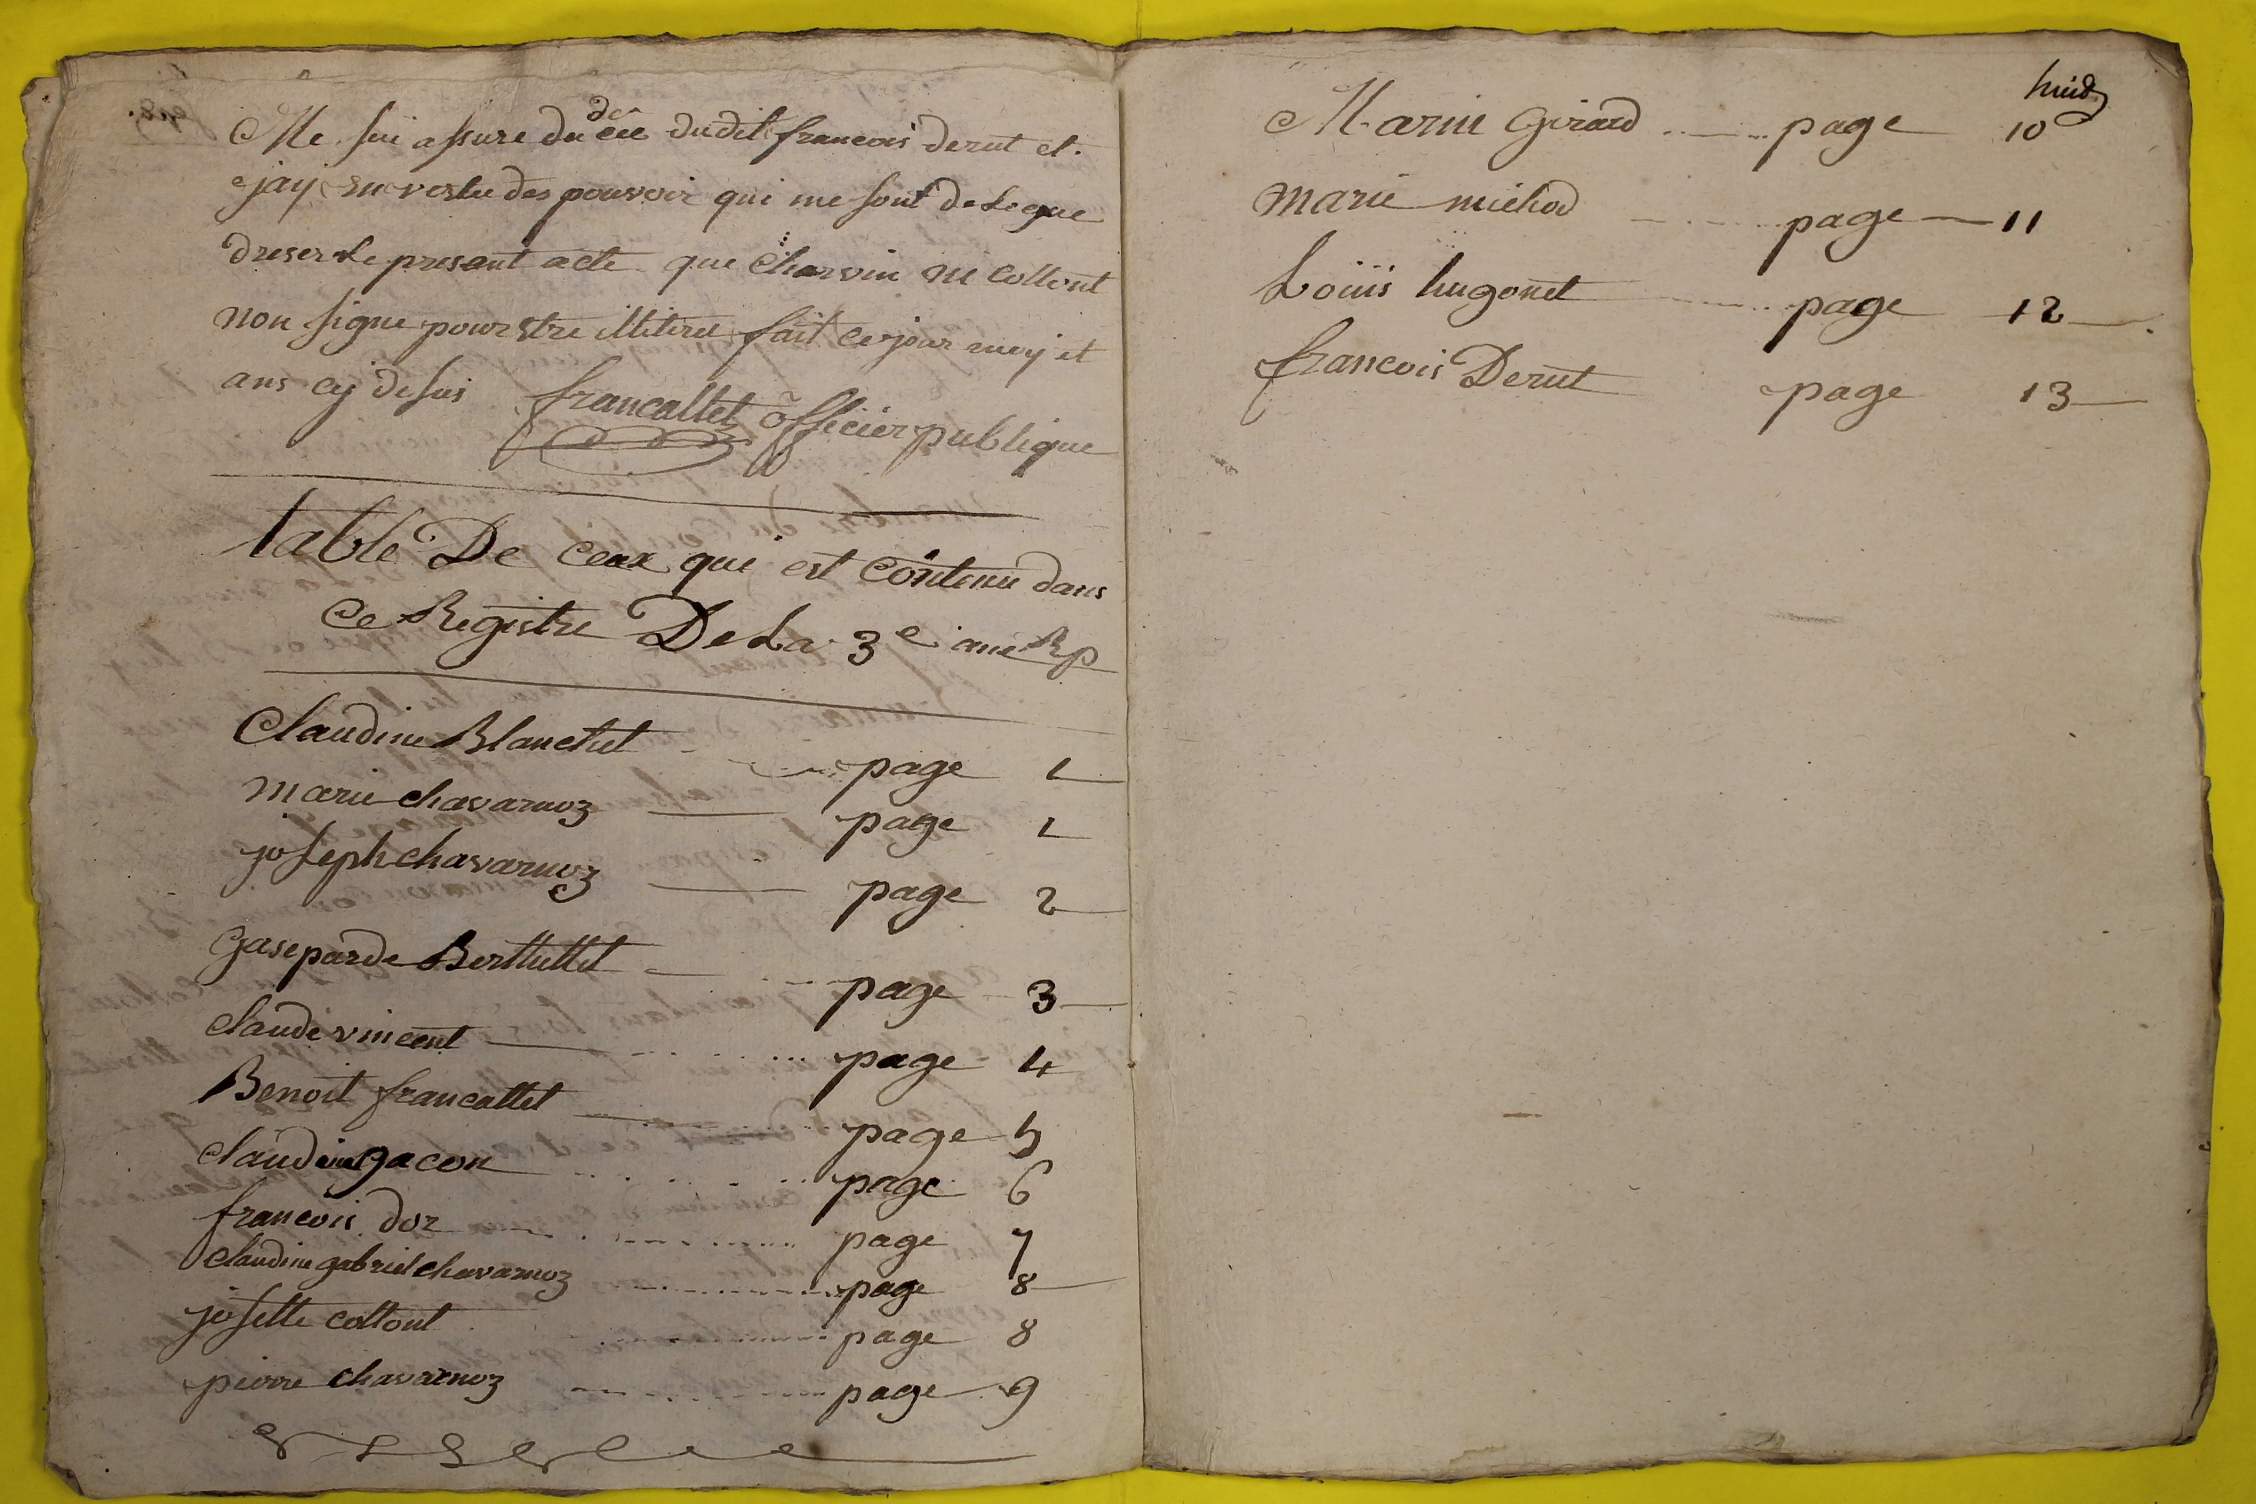 Me sui assure du décé dudit francois derut et
jay en vertu des pouvoir qui me sont delegue
dreser le present acte que Charvin ni Collont
non signe pour etre illitiree fait ce jour moy et
ans cy desus francallet officier publique
table De ceax qui est contenu dans
Ce Registre De La 3e ane Rp
Claudine Blanchet page 1
marie chavarnoz page 1
joseph chavarnoz page 2
gaseparde Berthettet page 3
claude vincent page 4
Benoit francallet page 5
claudine gacon page 6
francois dor page 7
claudine gabriel chavarnoz page 8
josette collont page 8
pierre chavarnoz page 9
huid
Marin Girard page 10
marie michod page 11
Louis hugonet page 12
francois Derut page 13